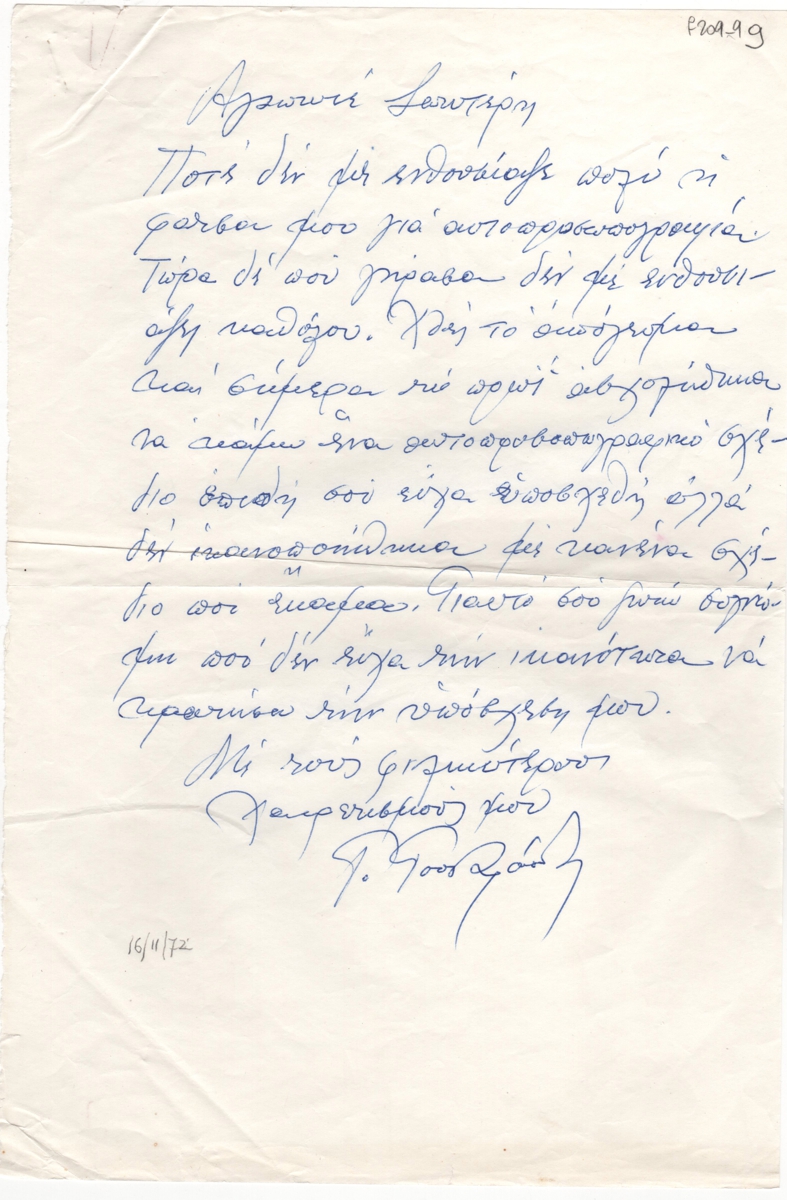 F209-99
Αγαπητέ Σωτήρη
Ποτέ δέν μέ ενθουσίαξε πολύ ή
φάτσα μου γιά αυτοπροσωπογραφία.
Τώρα δέ πού γήρασα δέν μέ ενθουσι-
άζει καθόλου. Χθές τό απόγευμα
καί σήμερα τό πρωί ασχολήθηκα
νά κάμω ένα αυτοπροσωπογραφικό σχέ-
διο επειδή σού είχα υποσχεθή αλλά
δέν ικανοποιήθηκα μέ κανένα σχέ-
διο πού έκαμα. Γιαυτό σού ζητώ συγνώ-
μη πού δέν είχα τήν ικανότητα νά
κρατήσω τήν υπόσχεση μου.
Μέ τούς φιλικώτερους
χαιρετισμούς μου
Γ.
16/11/72